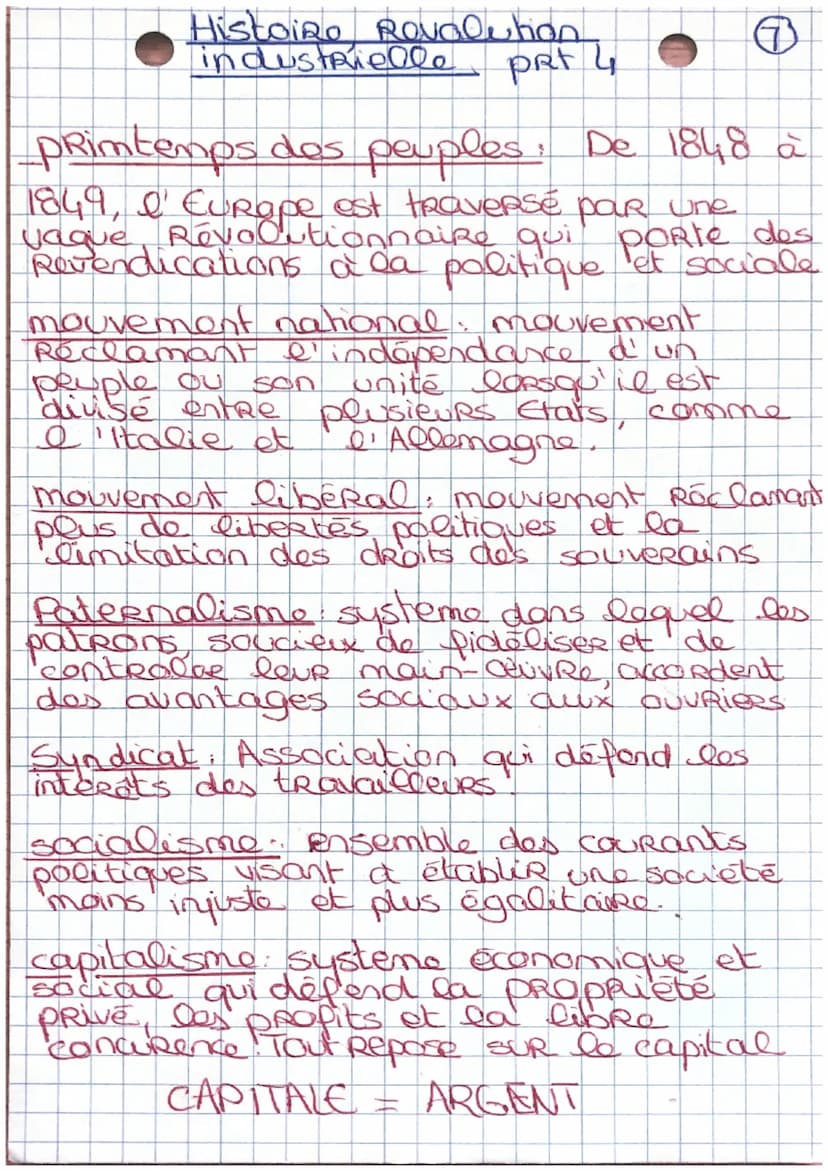 Histoire Revolution
industrielle prt 4
7
Printemps des peuples : De 1848 à
1849, l'Europe est traversé par une
vague Révolutionnaire qui porte des
Revendications à la politique et sociale
mouvement national : mouvement
Réclamant l'indépendance d'un
peuple ou son unité lorsqu'il est
divisé entre plusieurs Etats, comme
l'Italie et l'Allemagne.
mouvement libéral : mouvement Réclamant
plus de libertés politiques et la
limitation des droits des souverains
Paternalisme : systeme dans lequel les
patrons, soucieux de fidéliser et de
contrôler leur main-œuvre, accordent
des avantages sociaux aux ouvriers
Syndicat : Association qui défend les
intérêts des travailleurs.
socialisme : ensemble des courants
politiques visant à établir une société
moins injuste et plus égalitaire.
capitalisme : systeme économique et
social qui défend la propriété
privé, les profits et la libre
concurence. Tout repose sur le capital
CAPITALE = ARGENT